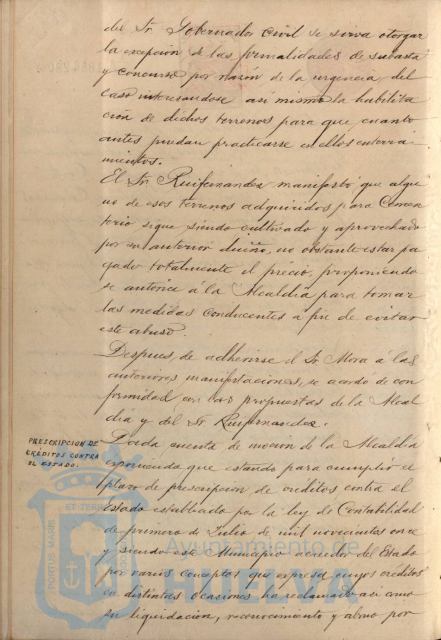 del Sr. Gobernador Civil se sirva otorgar
la excepción de las formalidades de subasta
y concurso por razón de la urgencia del
caso interesandose asi mismo la habilita
ción de dichos terrenos para que cuanto
antes puedan practicarse en ellos enterra
mientos.
El Sr. Ruifernandez manifestó que algu
no de esos terrenos adquiridos para Cemen
terio sigue siendo cultivado y aprovechado
por su anterior dueño, no obstante estar pa
gado totalmente el precio, proponiendo
se autorice á la Alcaldía para tomar
las medidas conducentes a fin de evitar
este abuso.
Despues de adherirse el Sr. Mora á las
anteriores manifestaciones, se acordó de con
formidad con las propuestas de la Alcal
día y del Sr. Ruifernandez.
PRESCRIPCION DE
CRÉDITOS CONTRA
EL ESTADO.
Dada cuenta de moción de la Alcaldía
exponiendo que estando para cumplir el
plazo de prescripción de créditos contra el
Estado establecido por la ley de Contabilidad
de primero de Julio de mil novecientos once
y siendo este Municipio acreedor del Estado
por varios conceptos que expresa cuyos créditos
en distintas ocasiones ha reclamado asi como
su liquidación, reconocimiento y abono por
Ayuntamiento de
HUELVA
PORTUS MARIS
ET TERRE